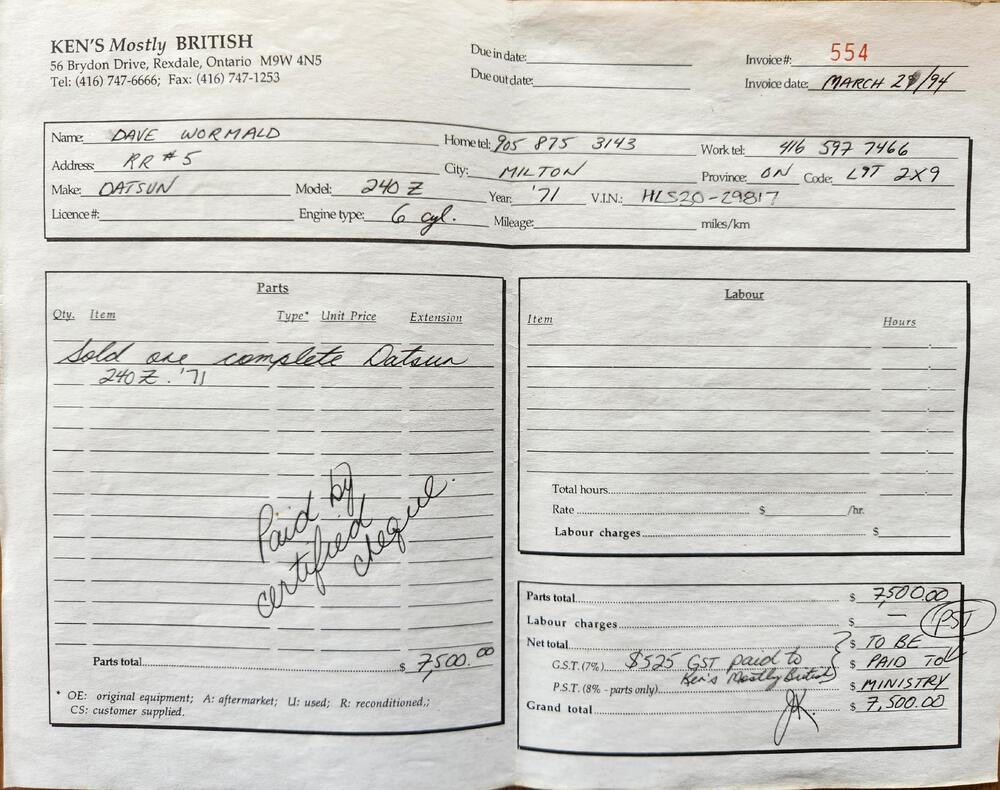 KEN'S Mostly BRITISH
56 Brydon Drive, Rexdale, Ontario M9W 4N5
Tel: (416) 747-6666; Fax: (416) 747-1253
Due in date:
Due out date:
Invoice #: 554
Invoice date: MARCH /94
Name: DAVE WORMALD Home tel: 905 875 3143 Work tel: 416 597 7466
Address: RR #5 City: MILTON Province: ON Code: L9T 2X9
Make: DATSUN Model: 240 Z Year: '71 V.I.N.: HLS20-29817
Licence #: Engine type: 6 cyl. Mileage: miles/km
Parts
Qty. Item Type* Unit Price Extension
Sold one complete Datsun
240 Z. '71
Paid by
certified
cheque.
Parts total $ 7,500.00
* OE: original equipment; A: aftermarket; U: used; R: reconditioned,;
CS: customer supplied.
Labour
Item Hours
Total hours
Rate $ /hr.
Labour charges $
Parts total $ 7,500.00
Labour charges $ — PST
Net total $ TO BE
G.S.T. (7%) $525 GST paid to $ PAID TO
Ken's Mostly British
P.S.T. (8% - parts only) $ MINISTRY
Grand total $ 7,500.00
JK.